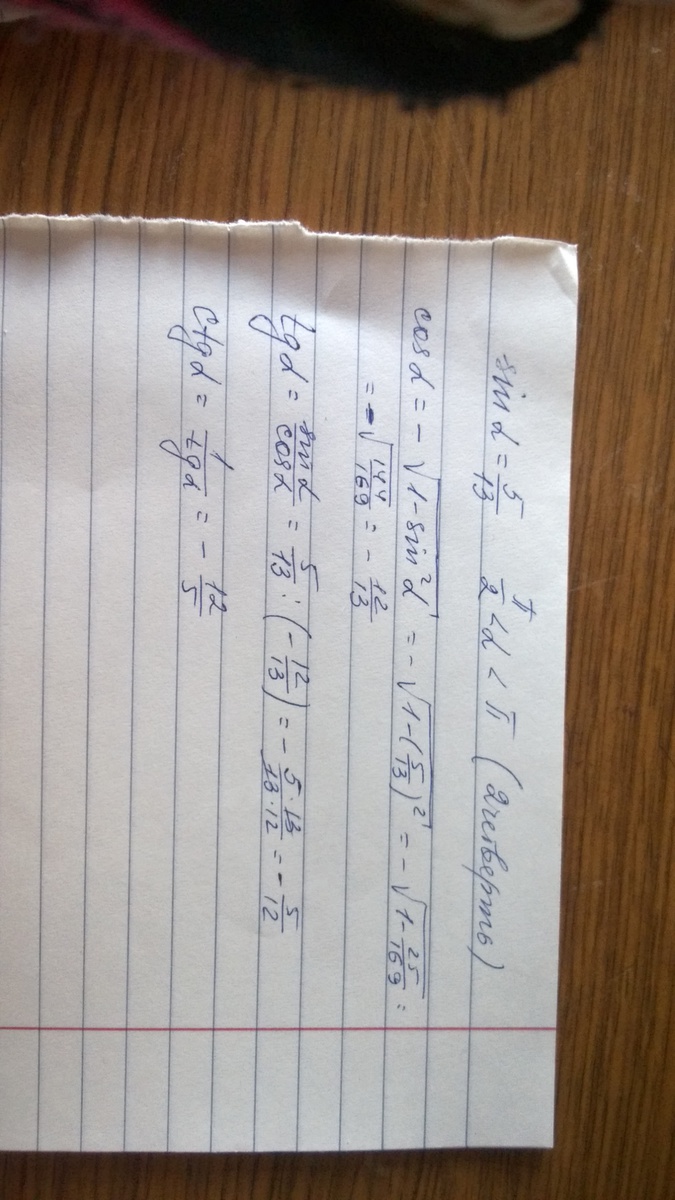 sin α = 5/13   π/2 < α < π (2 четверть)
cos α = - √(1 - sin² α) = - √(1 - (5/13)²) = - √(1 - 25/169) =
= - √(144/169) = - 12/13
tg α = sin α/cos α = 5/13 : (- 12/13) = - 5·13/13·12 = - 5/12
ctg α = 1/tg α = - 12/5